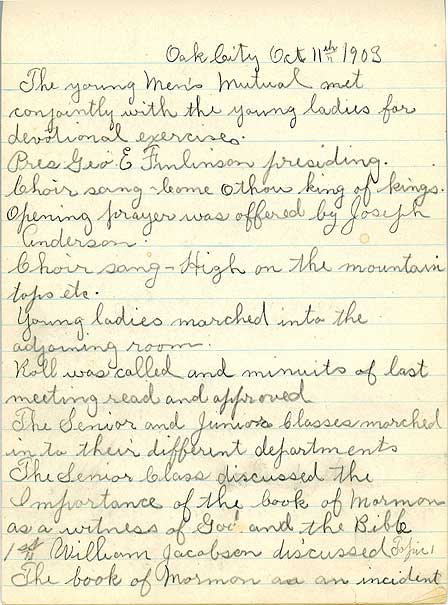 Oak City Oct 11th 1903
The young Men's Mutual met
conjointly with the young ladies for
devotional exercises.
Pres Geo E Finlinson presiding.
Choir sang - Come O thou king of kings.
Opening prayer was offered by Joseph
Anderson.
Choir sang - High on the mountain
tops etc.
Young ladies marched into the
adjoining room.
Roll was called and minuits of last
meeting read and approved
The Senior and Junior Classes marched
in to their different departments
The Senior Class discussed the
Importance of the book of Mormon
as a witness of God and the Bible
1st William Jacobson discussed Topic 1
The book of Mormon as an incident